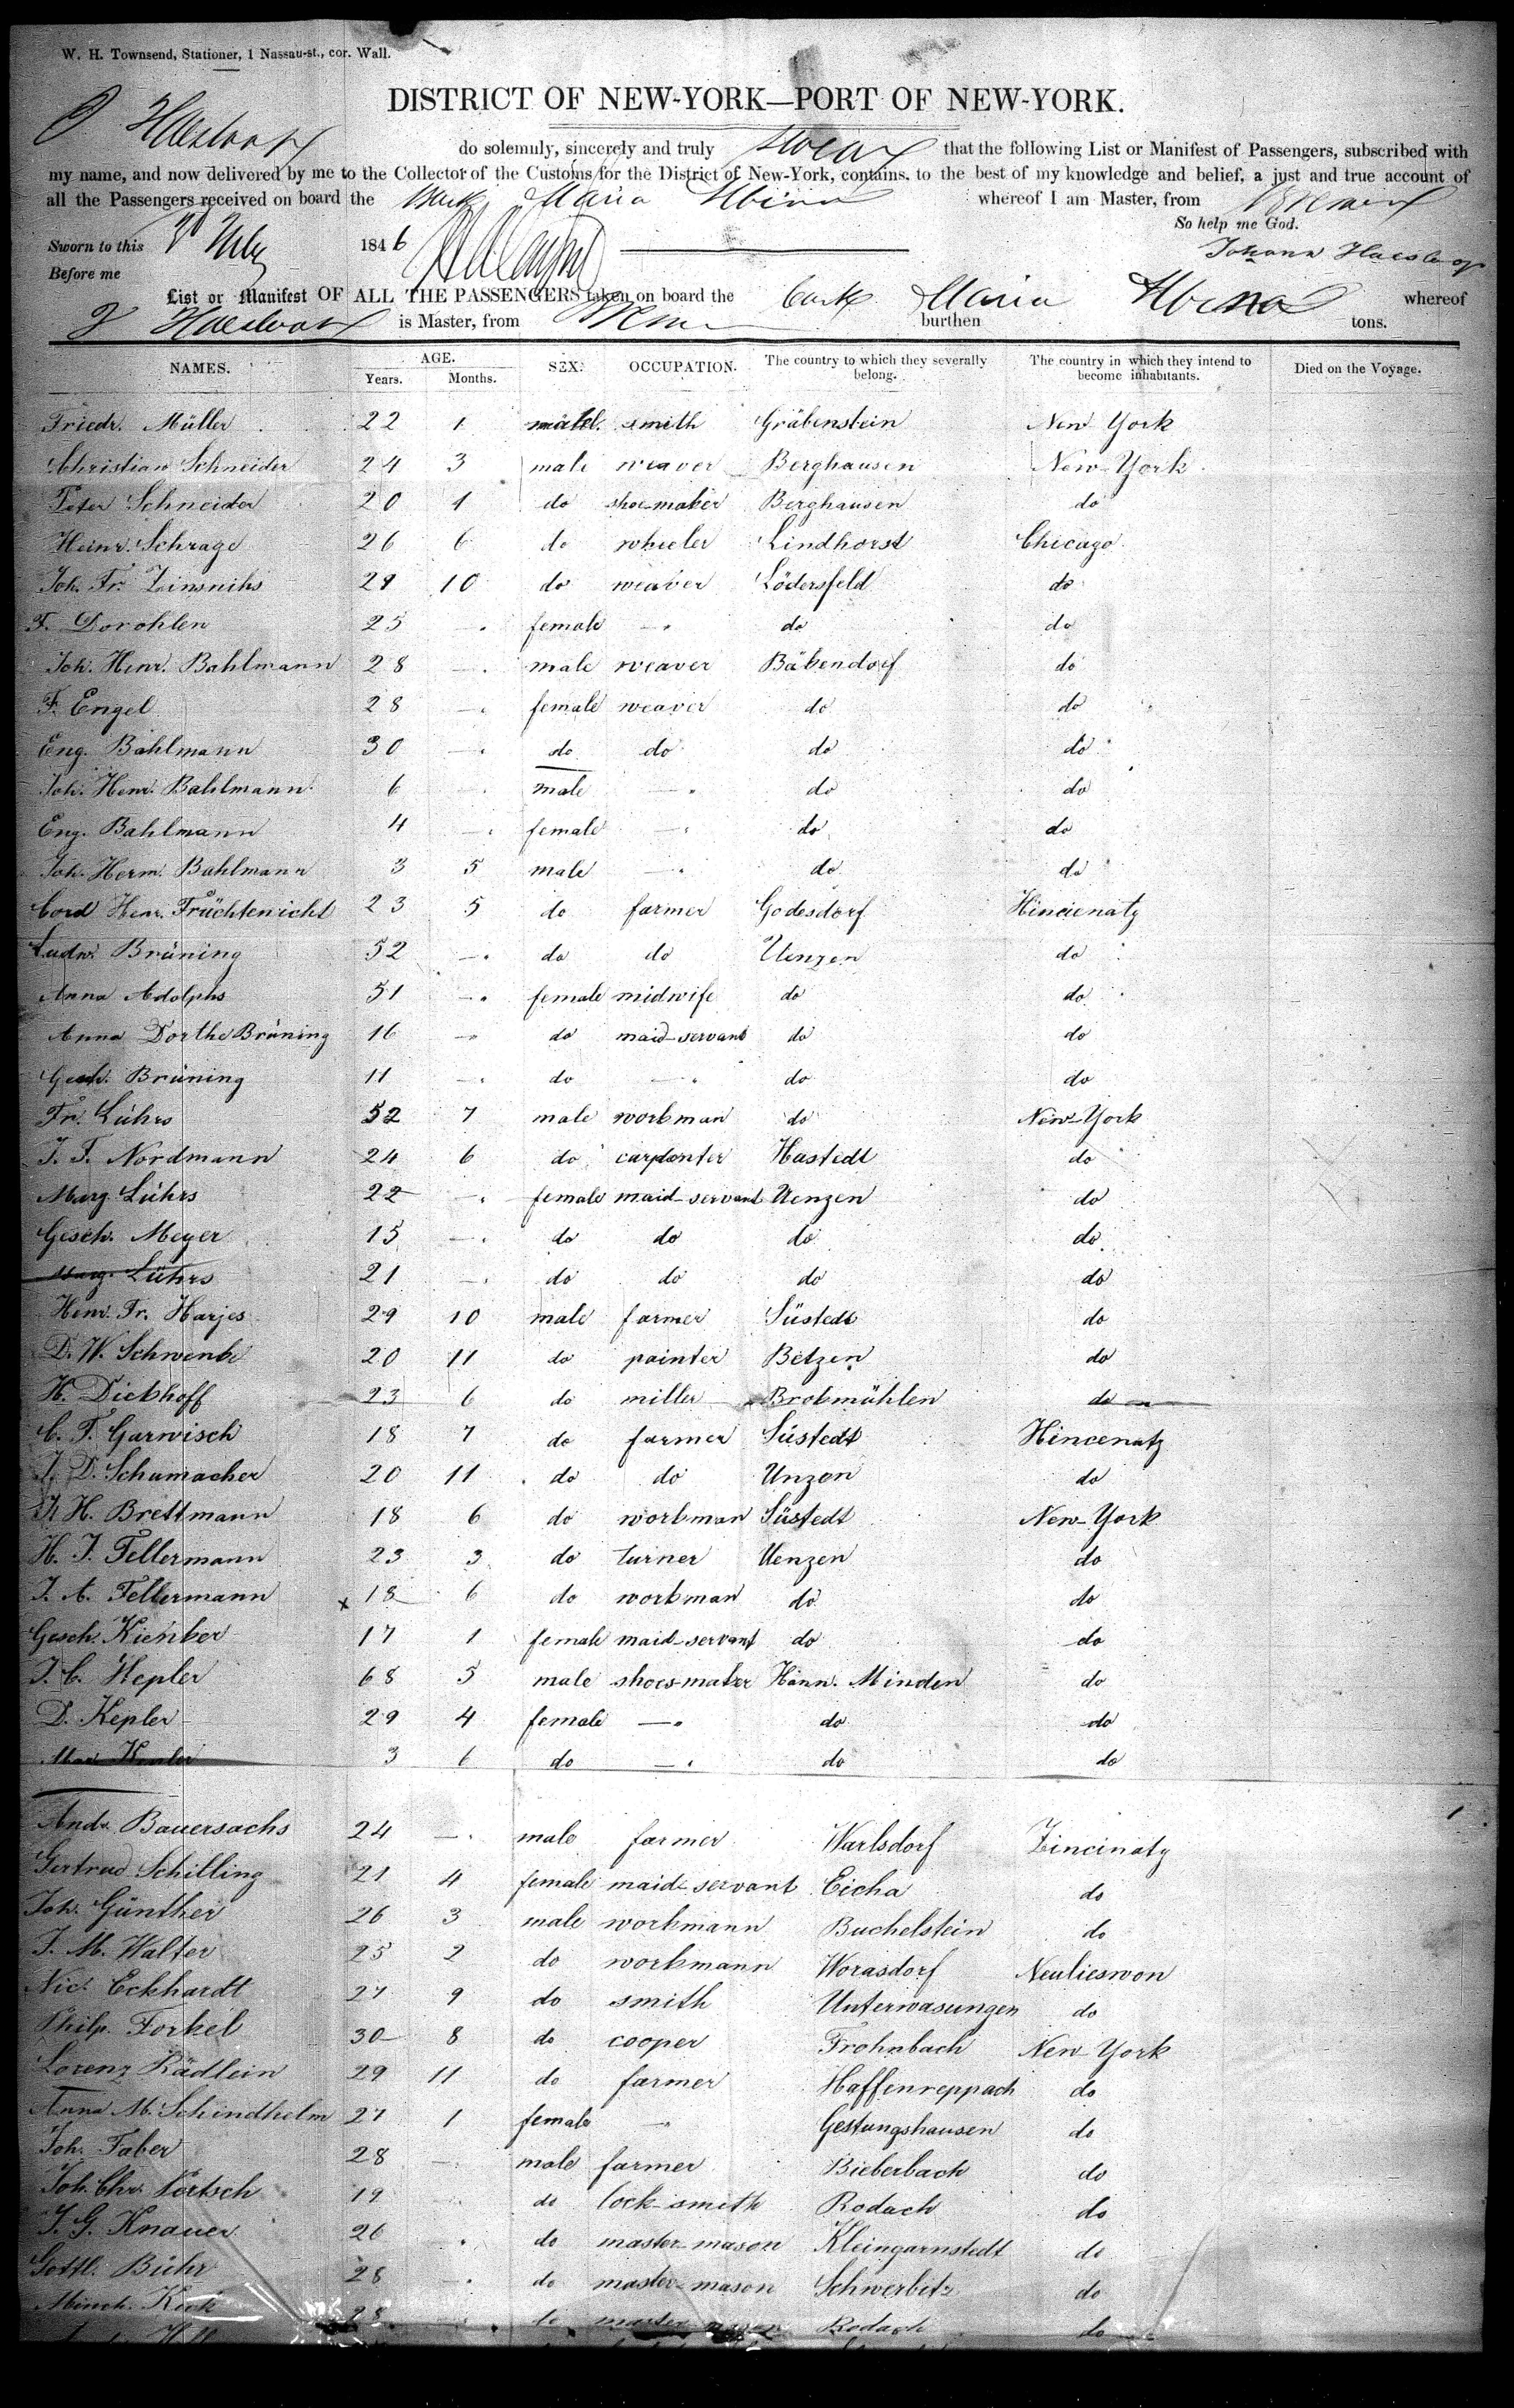 W. H. Townsend, Stationer, 1 Nassau-st., cor. Wall.
DISTRICT OF NEW-YORK—PORT OF NEW-YORK.
do solemuly, sincerely and truly swear that the following List or Manifest of Passengers, subscribed with
my name, and now delivered by me to the Collector of the Customs for the District of New-York, contains, to the best of my knowledge and belief, a just and true account of
all the Passengers received on board the Bark Maria whereof I am Master, from Bremen
So help me God.
Sworn to this 1846
Johann Haesloop
Before me
List or Manifest OF ALL THE PASSENGERS taken on board the bark Maria whereof
is Master, from Bremen burthen tons.
NAMES. AGE. Years. Months. SEX. OCCUPATION. The country to which they severally belong. The country in which they intend to become inhabitants. Died on the Voyage.
Friedr. Müller 22 1 male smith Gräbenstein New York
Christian Schneider 24 3 male weaver Berghausen New-York
Peter Schneider 20 1 do shoe-maker Berghausen do
Heinr. Schrage 26 6 do wheeler Lindhorst Chicago
Joh. Fr. 29 10 do weaver Lödersfeld do
F. Dorohlen 25 female do do
Joh. Henr. Bahlmann 28 — male weaver Bäbendorf do
F. Engel 28 — female weaver do do
Eng. Bahlmann 30 — do do do do
Joh. Henr. Bahlmann 6 — male — do do
Eng. Bahlmann 4 — female — do do
Joh. Herm. Bahlmann 3 5 male — do do
Cord Henr. Früchtenicht 23 5 do farmer Godesdorf Hincienaty
Ludw. Brüning 52 — do do Uenzen do
Anna Adolphs 51 — female midwife do do
Anna Dorthe Brüning 16 — do maid-servant do do
Gesch. Brüning 11 — do — do do
Fr. Lührs 52 7 male workman do New-York
J. F. Nordmann 24 6 do carpenter Hastedt do
Marg. Lührs 22 — female maid-servant Uenzen do
Gesch. Meyer 15 — do do do do
Marg. Lührs 21 — do do do do
Henr. Fr. Harjes 29 10 male farmer Süstedt do
D. W. Schwenke 20 11 do painter Betzen do
H. Diekhoff 23 6 do miller Brokmühlen do
C. F. Garwisch 18 7 do farmer Süstedt Hincenatz
J. D. Schumacher 20 11 do do Unzen do
H. Brettmann 18 6 do workman Süstedt New-York
H. J. Fellermann 23 3 do turner Uenzen do
J. A. Fellermann x 18 6 do workman do do
Gesch. Kienker 17 1 female maid-servant do do
J. C. Hepler 68 5 male shoes-maker Hann. Minden do
D. Kepler 29 4 female — do do
Mar. Kepler 3 6 do — do do
Andr. Bauersachs 24 — male farmer Warlsdorf Zincinaty
Gertrud Schilling 21 4 female maid-servant Eicha do
Joh. Günther 26 3 male workmann Buchelstein do
J. M. Walter 25 2 do workmann Worasdorf Neulieswon
Nic. Eckhardt 27 9 do smith Unterwasungen do
Philp. Forkel 30 8 do cooper Frohnbach New-York
Lorenz Rädlein 29 11 do farmer Haffenreppach do
Anna M. Schindhelm 27 1 female — Gestungshausen do
Joh. Faber 28 — male farmer Bieberbach do
Joh. Chr. Pertsch 19 do lock-smith Rodach do
J. G. Knauer 26 do master-mason Kleingarnstedt do
Gottl. Bühr 28 — do master-mason Schwerbitz do
28 do master mason Rodach do